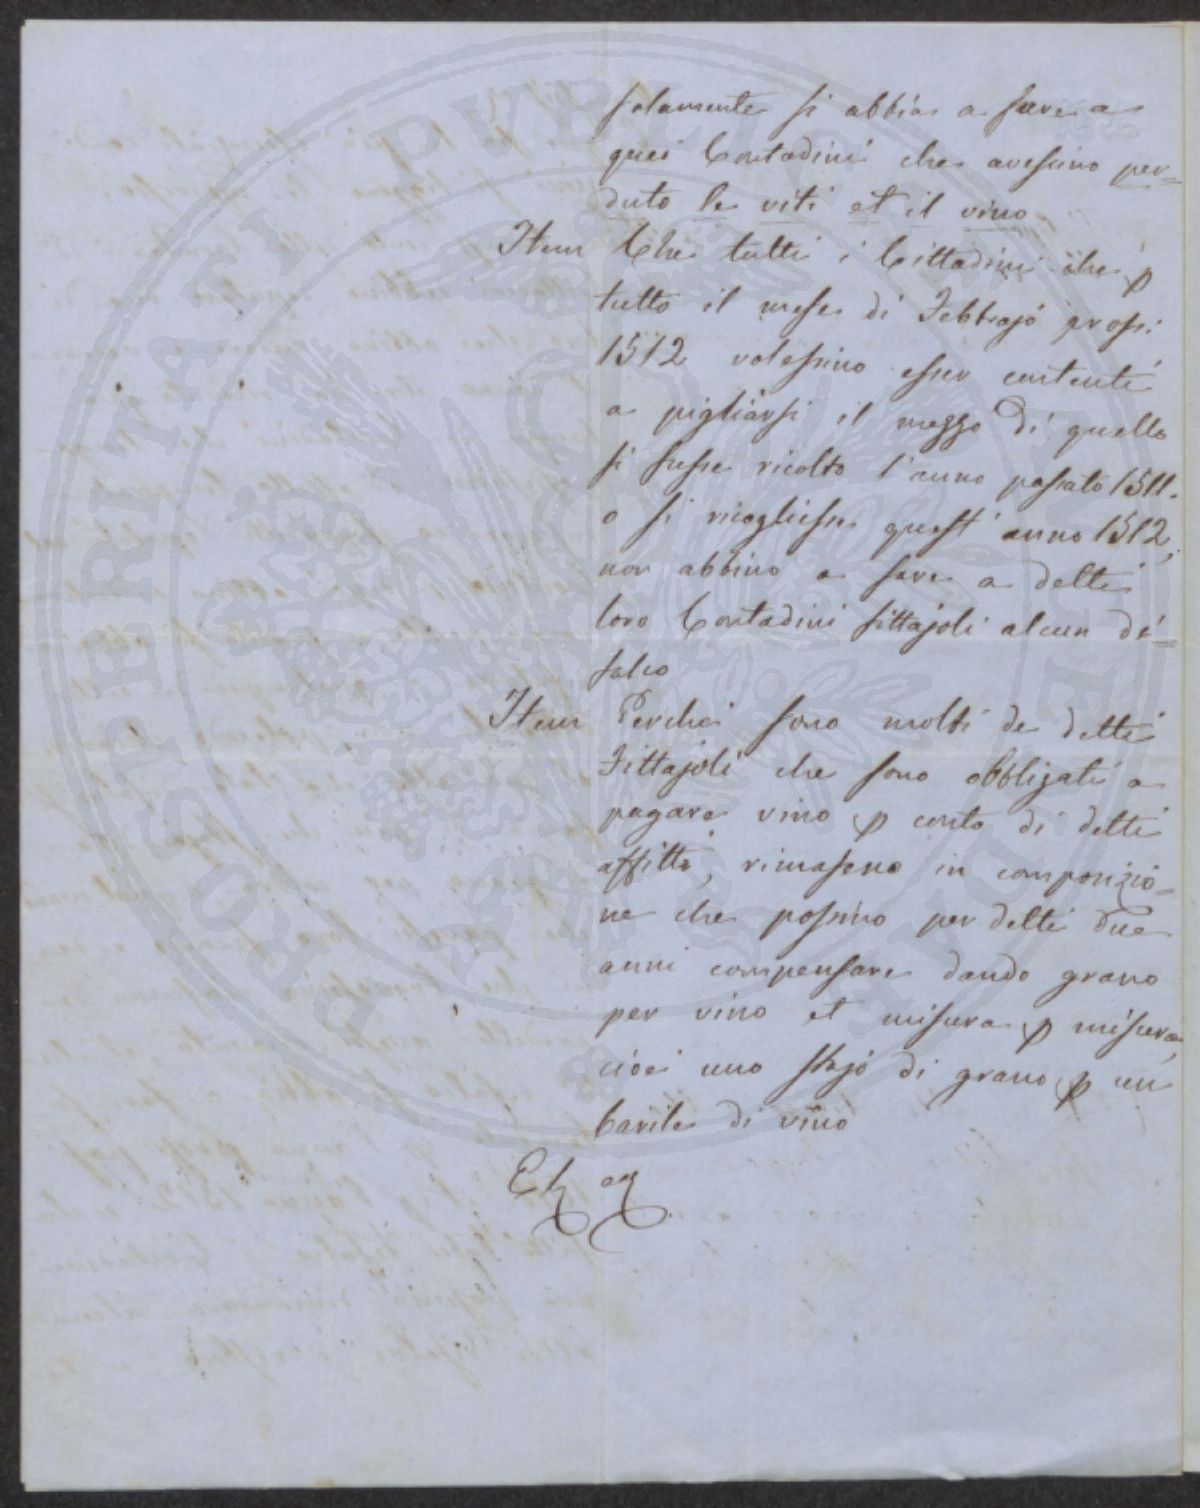 solamente si abbia a fare a
quei Contadini che avessino per=
duto le viti et il vino
Item Che tutti i Cittadini che p
tutto il mese di Febbrajo pross:
1512 volessino esser contenti
a pigliarsi il mezzo di quello
si fusse ricolto l'anno passato 1511.
o si ricogliesse quest'anno 1512,
non abbino a fare a detti
loro Contadini fittajoli alcun di=
falco
Item Perchè sono molti de detti
Fittajoli che sono obbligati a
pagare vino p conto di detti
affitti, rimasono in composizio=
ne che possino per detti due
anni compensare dando grano
per vino et misura p misura,
cioè uno stajo di grano p un
barile di vino
PROSPERITATI PVBLICAE AVGENDAE